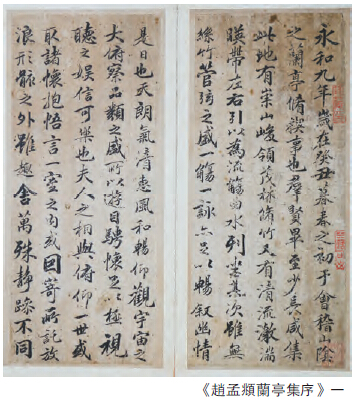 永和九年歲在癸丑暮春之初于會稽山陰
之蘭亭脩禊事也羣賢畢至少長咸集
此地有崇山峻領茂林脩竹又有清流激湍
暎帶左右引以為流觴曲水列坐其次雖無
絲竹管弦之盛觴一詠亦足以暢叙幽情
是日也天朗氣清惠風和暢仰觀宇宙之
大俯察品類之盛所以遊目騁懷足以極視
聽之娛信可樂也夫人之相與俯仰一世或
取諸懷抱悟言一室之內或因寄所託放
浪形骸之外雖趣舍萬殊靜躁不同
《趙孟頫蘭亭集序》一